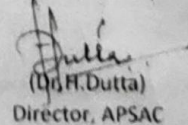 Dutta
(Dr.H.Dutta)
Director, APSAC